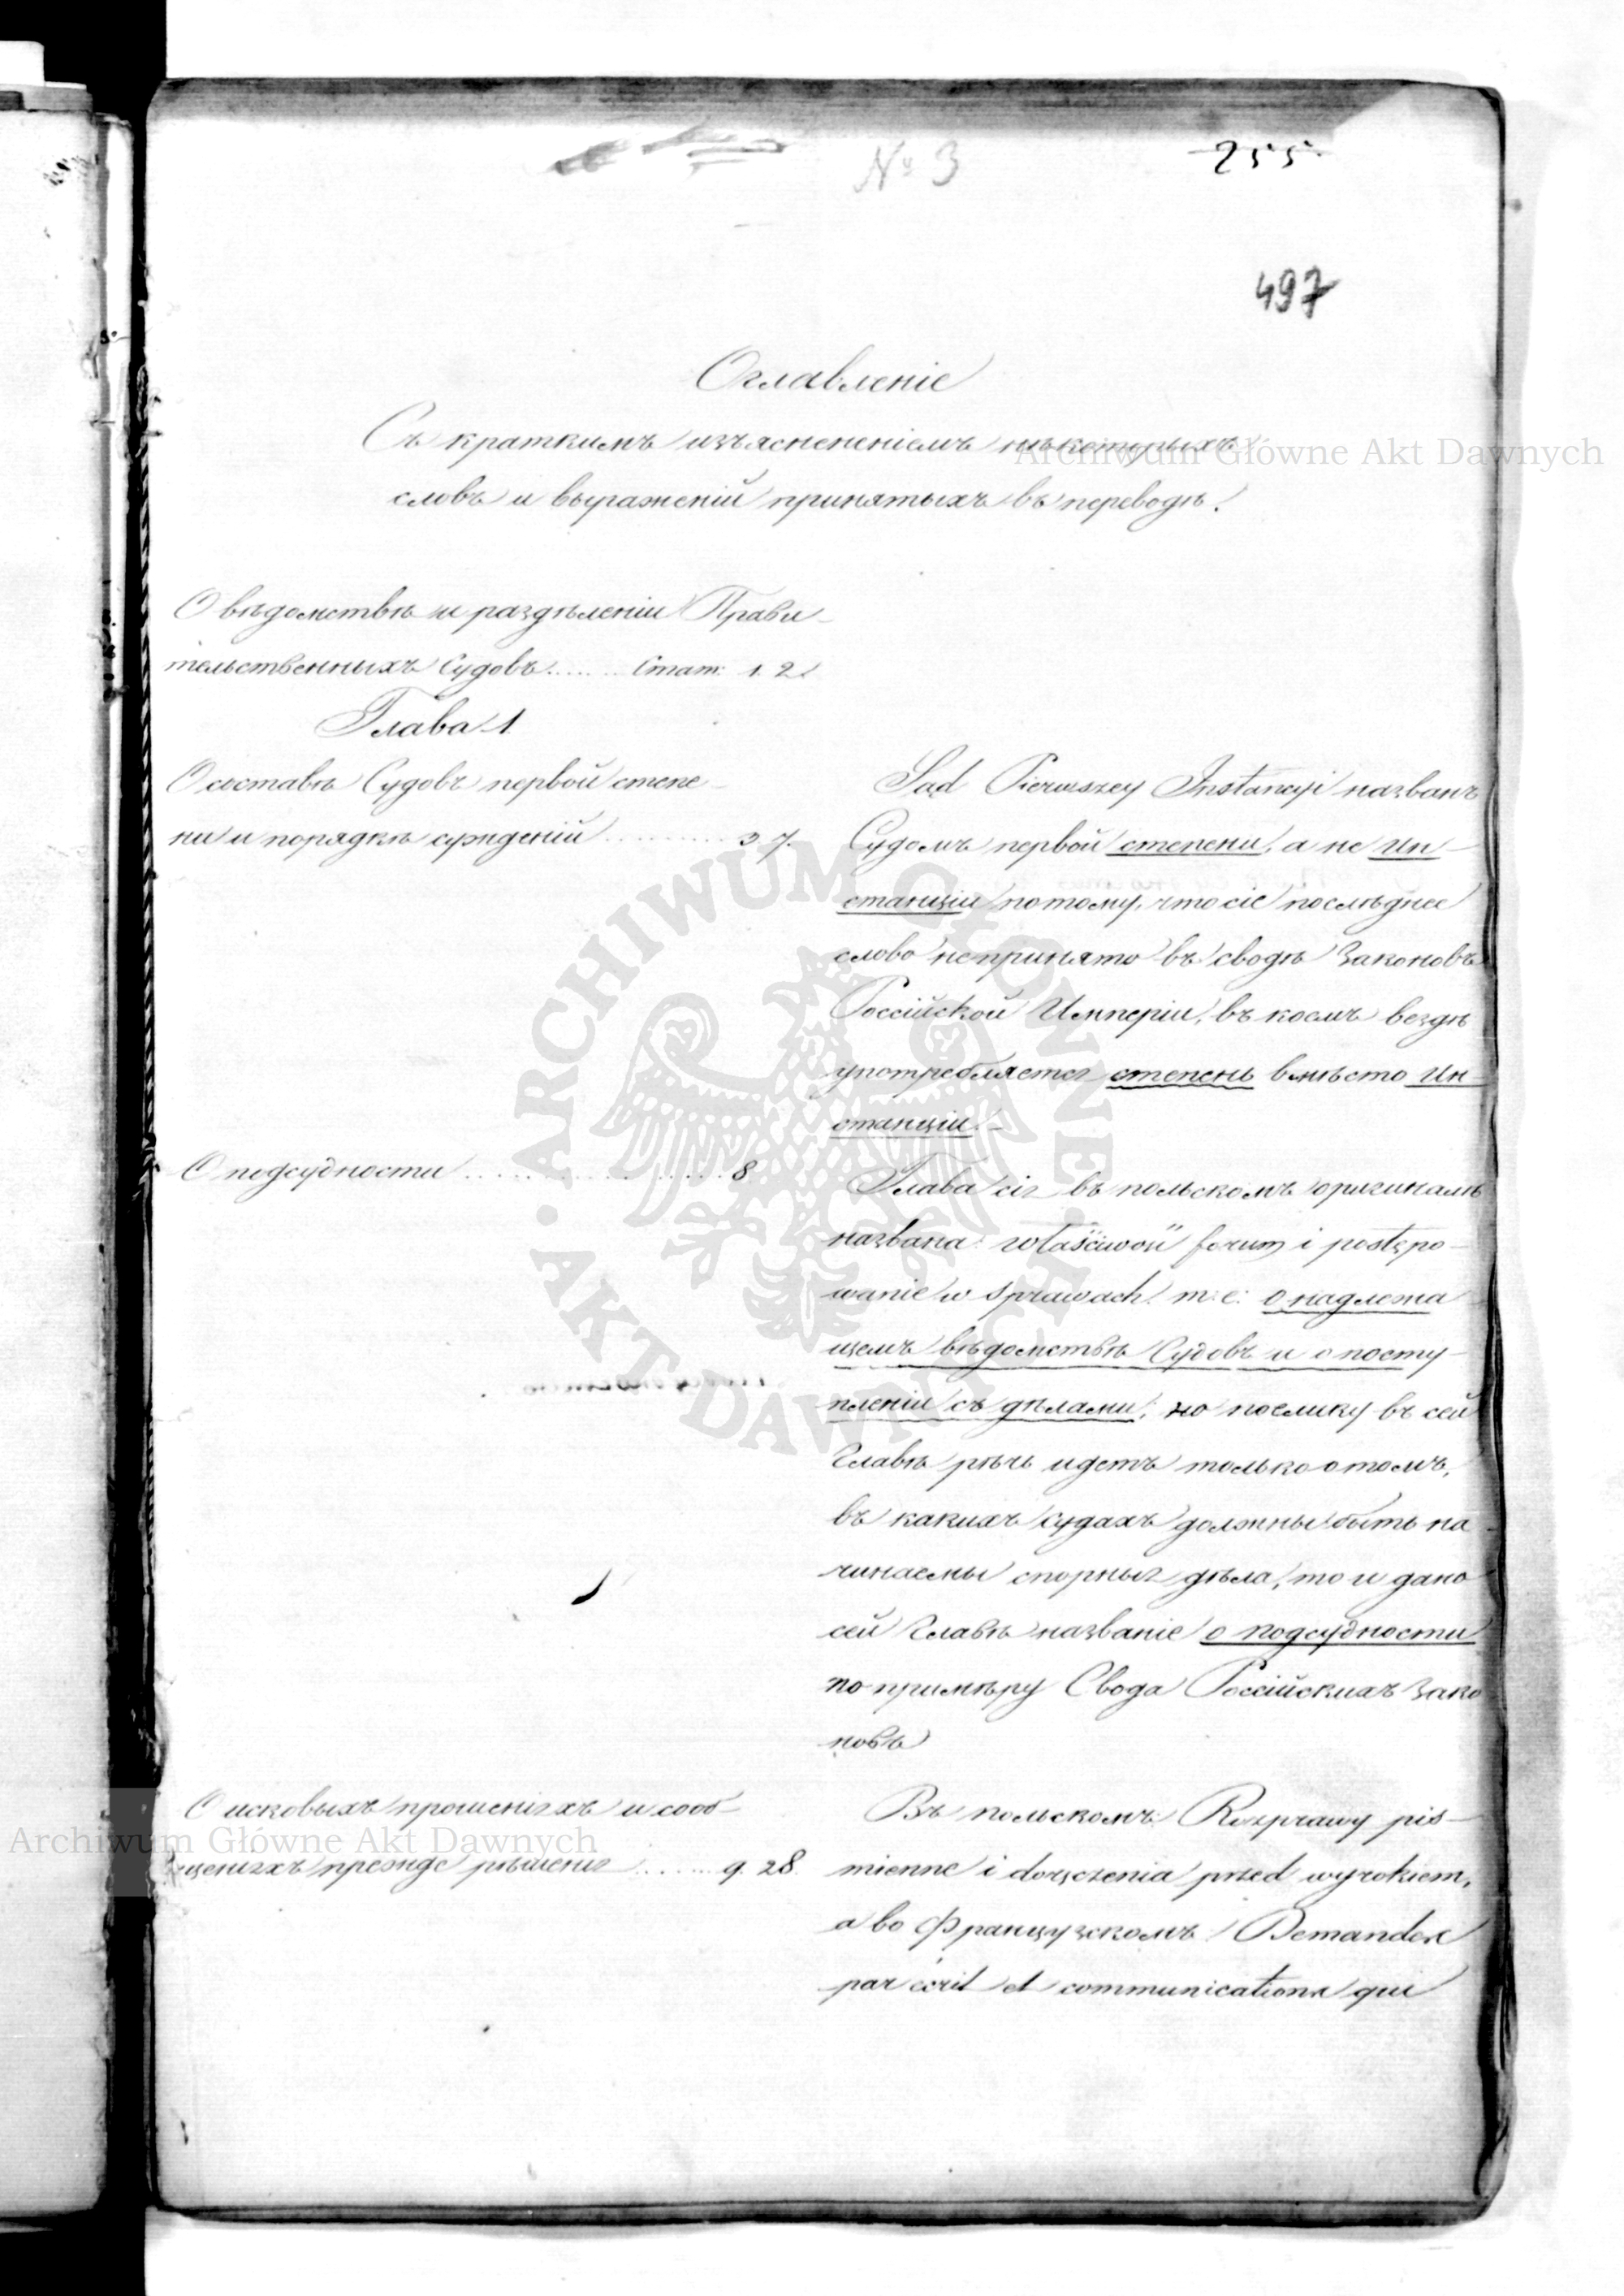 № 3
255.
497
Оглавленіе
Съ краткимъ изъясненіемъ нѣкоторыхъ
словъ и выраженій принятыхъ въ переводѣ.
О вѣдомствѣ и раздѣленіи Прави-
тельственныхъ Судовъ........ Стат: 1. 2.
Глава 1.
О составѣ Судовъ первой степе-
ни и порядкѣ сужденій .......... 3 7.
Sąd Pierwszey Instancyi названъ
Судомъ первой степени, а не Ин-
станціи потому, что сіе послѣднее
слово непринято въ сводѣ Законовъ
Россійской Имперіи, въ коемъ вездѣ
употребляется степень вмѣсто Ин-
станціи. -
О подсудности .................. 8
Глава сія въ польскомъ оригиналѣ
названа: właściwość forum i postępo-
wanie w sprawach. т: е: о надлежа
щемъ вѣдомствѣ Судовъ и о посту-
пленіи съ дѣлами; но поелику въ сей
Главѣ рѣчь идетъ только о томъ,
въ какихъ судахъ должны быть на
чинаемы спорныя дѣла, то и дано
сей Главѣ названіе о подсудности
по примѣру Свода Россійскихъ Зако
новъ
О исковыхъ прошеніяхъ и сооб-
щеніяхъ прежде рѣшенія ........ 9. 28.
Въ польскомъ: Rozprawy pis-
mienne i doręczenia przed wyrokiem,
а во Французскомъ: Demandes
par écrit et communications qui
Archiwum Główne Akt Dawnych
Archiwum Główne Akt Dawnych
ARCHIWUM GŁÓWNE · AKT DAWNYCH ·